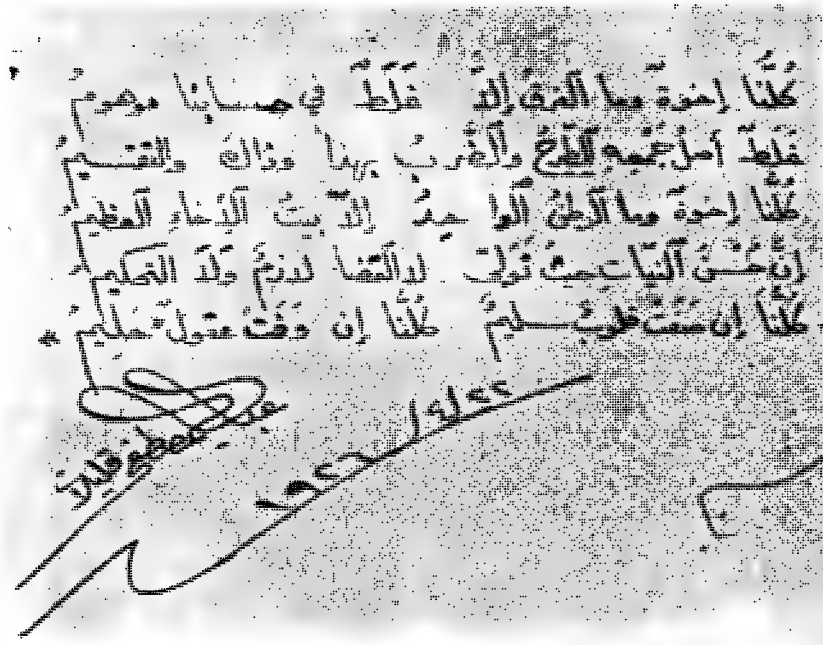 كُلُّنا إخوةٌ وما الفرقُ إلاَّ غَلَطٌ في حسابنا موهومُ
غَلَطٌ أصلُ جمعِهِ الطَّرحُ والضَّربُ بهذا وذاك والتقسيمُ
كُلُّنا إخوةٌ وما الوطنُ الواحدُ إلاّ بيتُ الإخاءِ العظيمُ
إنَّ حُسْنَ النيّاتِ حيثُ تَوَلّى لا القضا لازمٌ ولا التحكيمُ
كُلُّنا إن صَفَتْ قلوبٌ سليمٌ كُلُّنا إن وَفَتْ عقولٌ حليمُ
قليلات
١٩٢٦/٤/٢٢